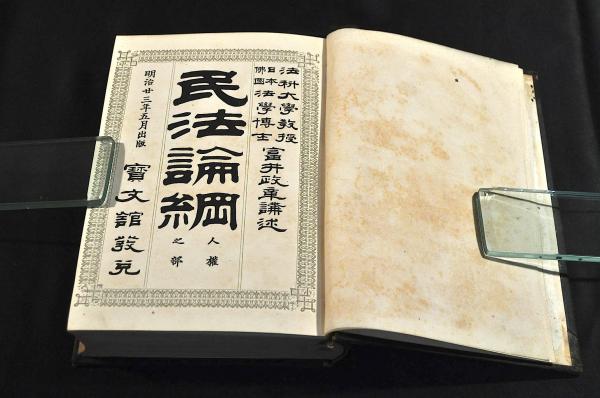 法科大學教授
日本佛國法學博士
富井政章講述
民法論綱
人權
之部
明治廿三年五月出版
寶文館發兌